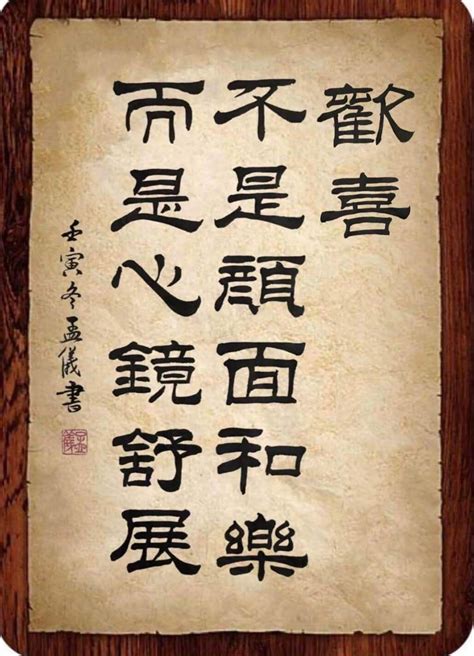 歡喜
不是顏面和樂
而是心鏡舒展
壬寅冬孟儀書